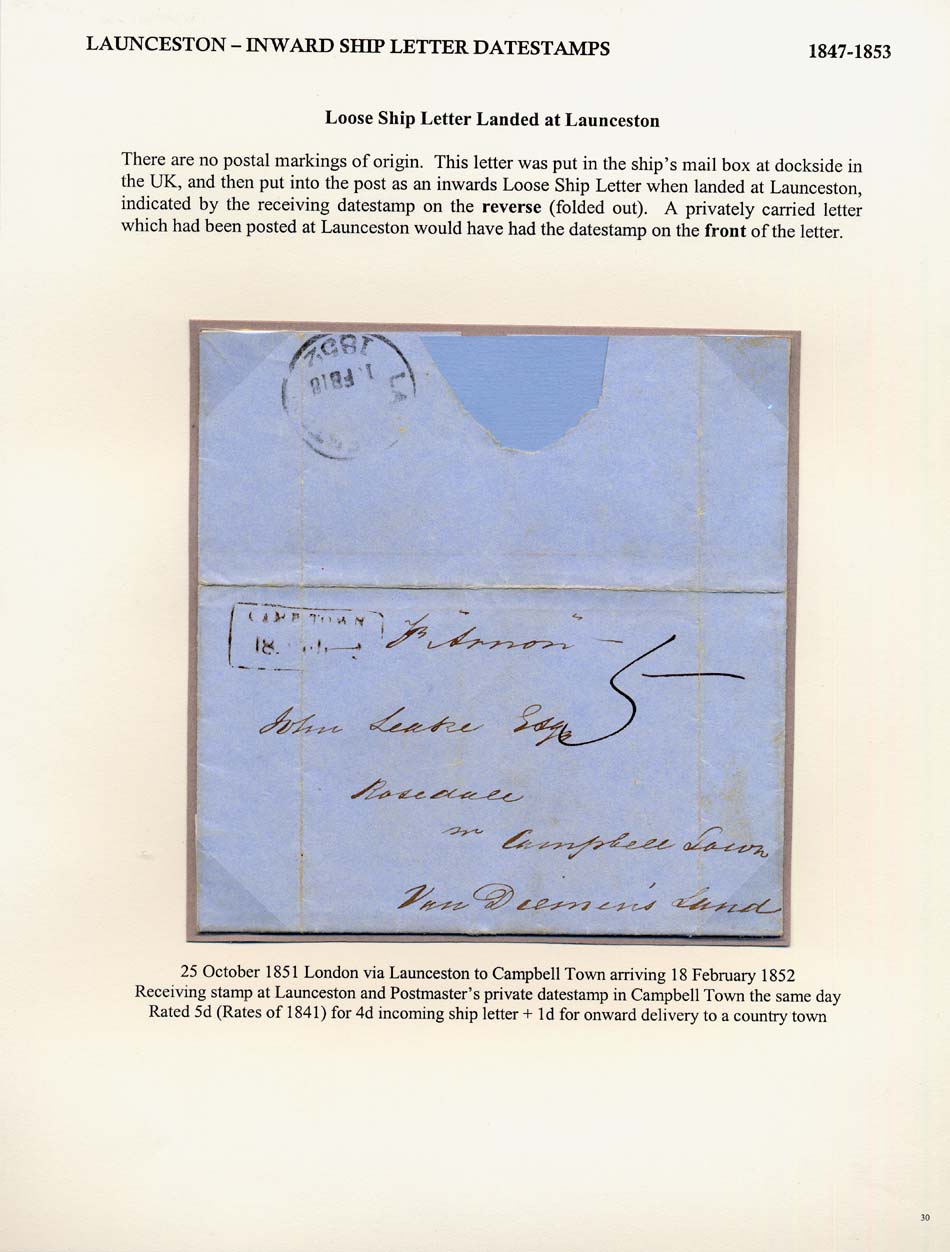 LAUNCESTON – INWARD SHIP LETTER DATESTAMPS 1847-1853
Loose Ship Letter Landed at Launceston
There are no postal markings of origin. This letter was put in the ship's mail box at dockside in
the UK, and then put into the post as an inwards Loose Ship Letter when landed at Launceston,
indicated by the receiving datestamp on the reverse (folded out). A privately carried letter
which had been posted at Launceston would have had the datestamp on the front of the letter.
1852
FB18
LA
CAMP TOWN
18
"Arnon"
5
John Leake Esqr
Rosedale
nr Campbell Town
Van Diemen's Land
25 October 1851 London via Launceston to Campbell Town arriving 18 February 1852
Receiving stamp at Launceston and Postmaster's private datestamp in Campbell Town the same day
Rated 5d (Rates of 1841) for 4d incoming ship letter + 1d for onward delivery to a country town
30